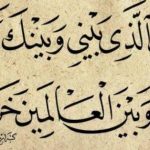 الَّذي بَيْني وَبَيْنَكَ
وَبَيْنَ الْعَالَمِينَ خَر